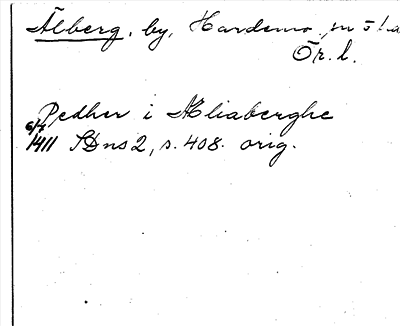 Älberg, by, Hardemo sn ö
Ör. l.
Pedher i Æliaberghe
6/7
1411 SDns 2, s. 408. orig.